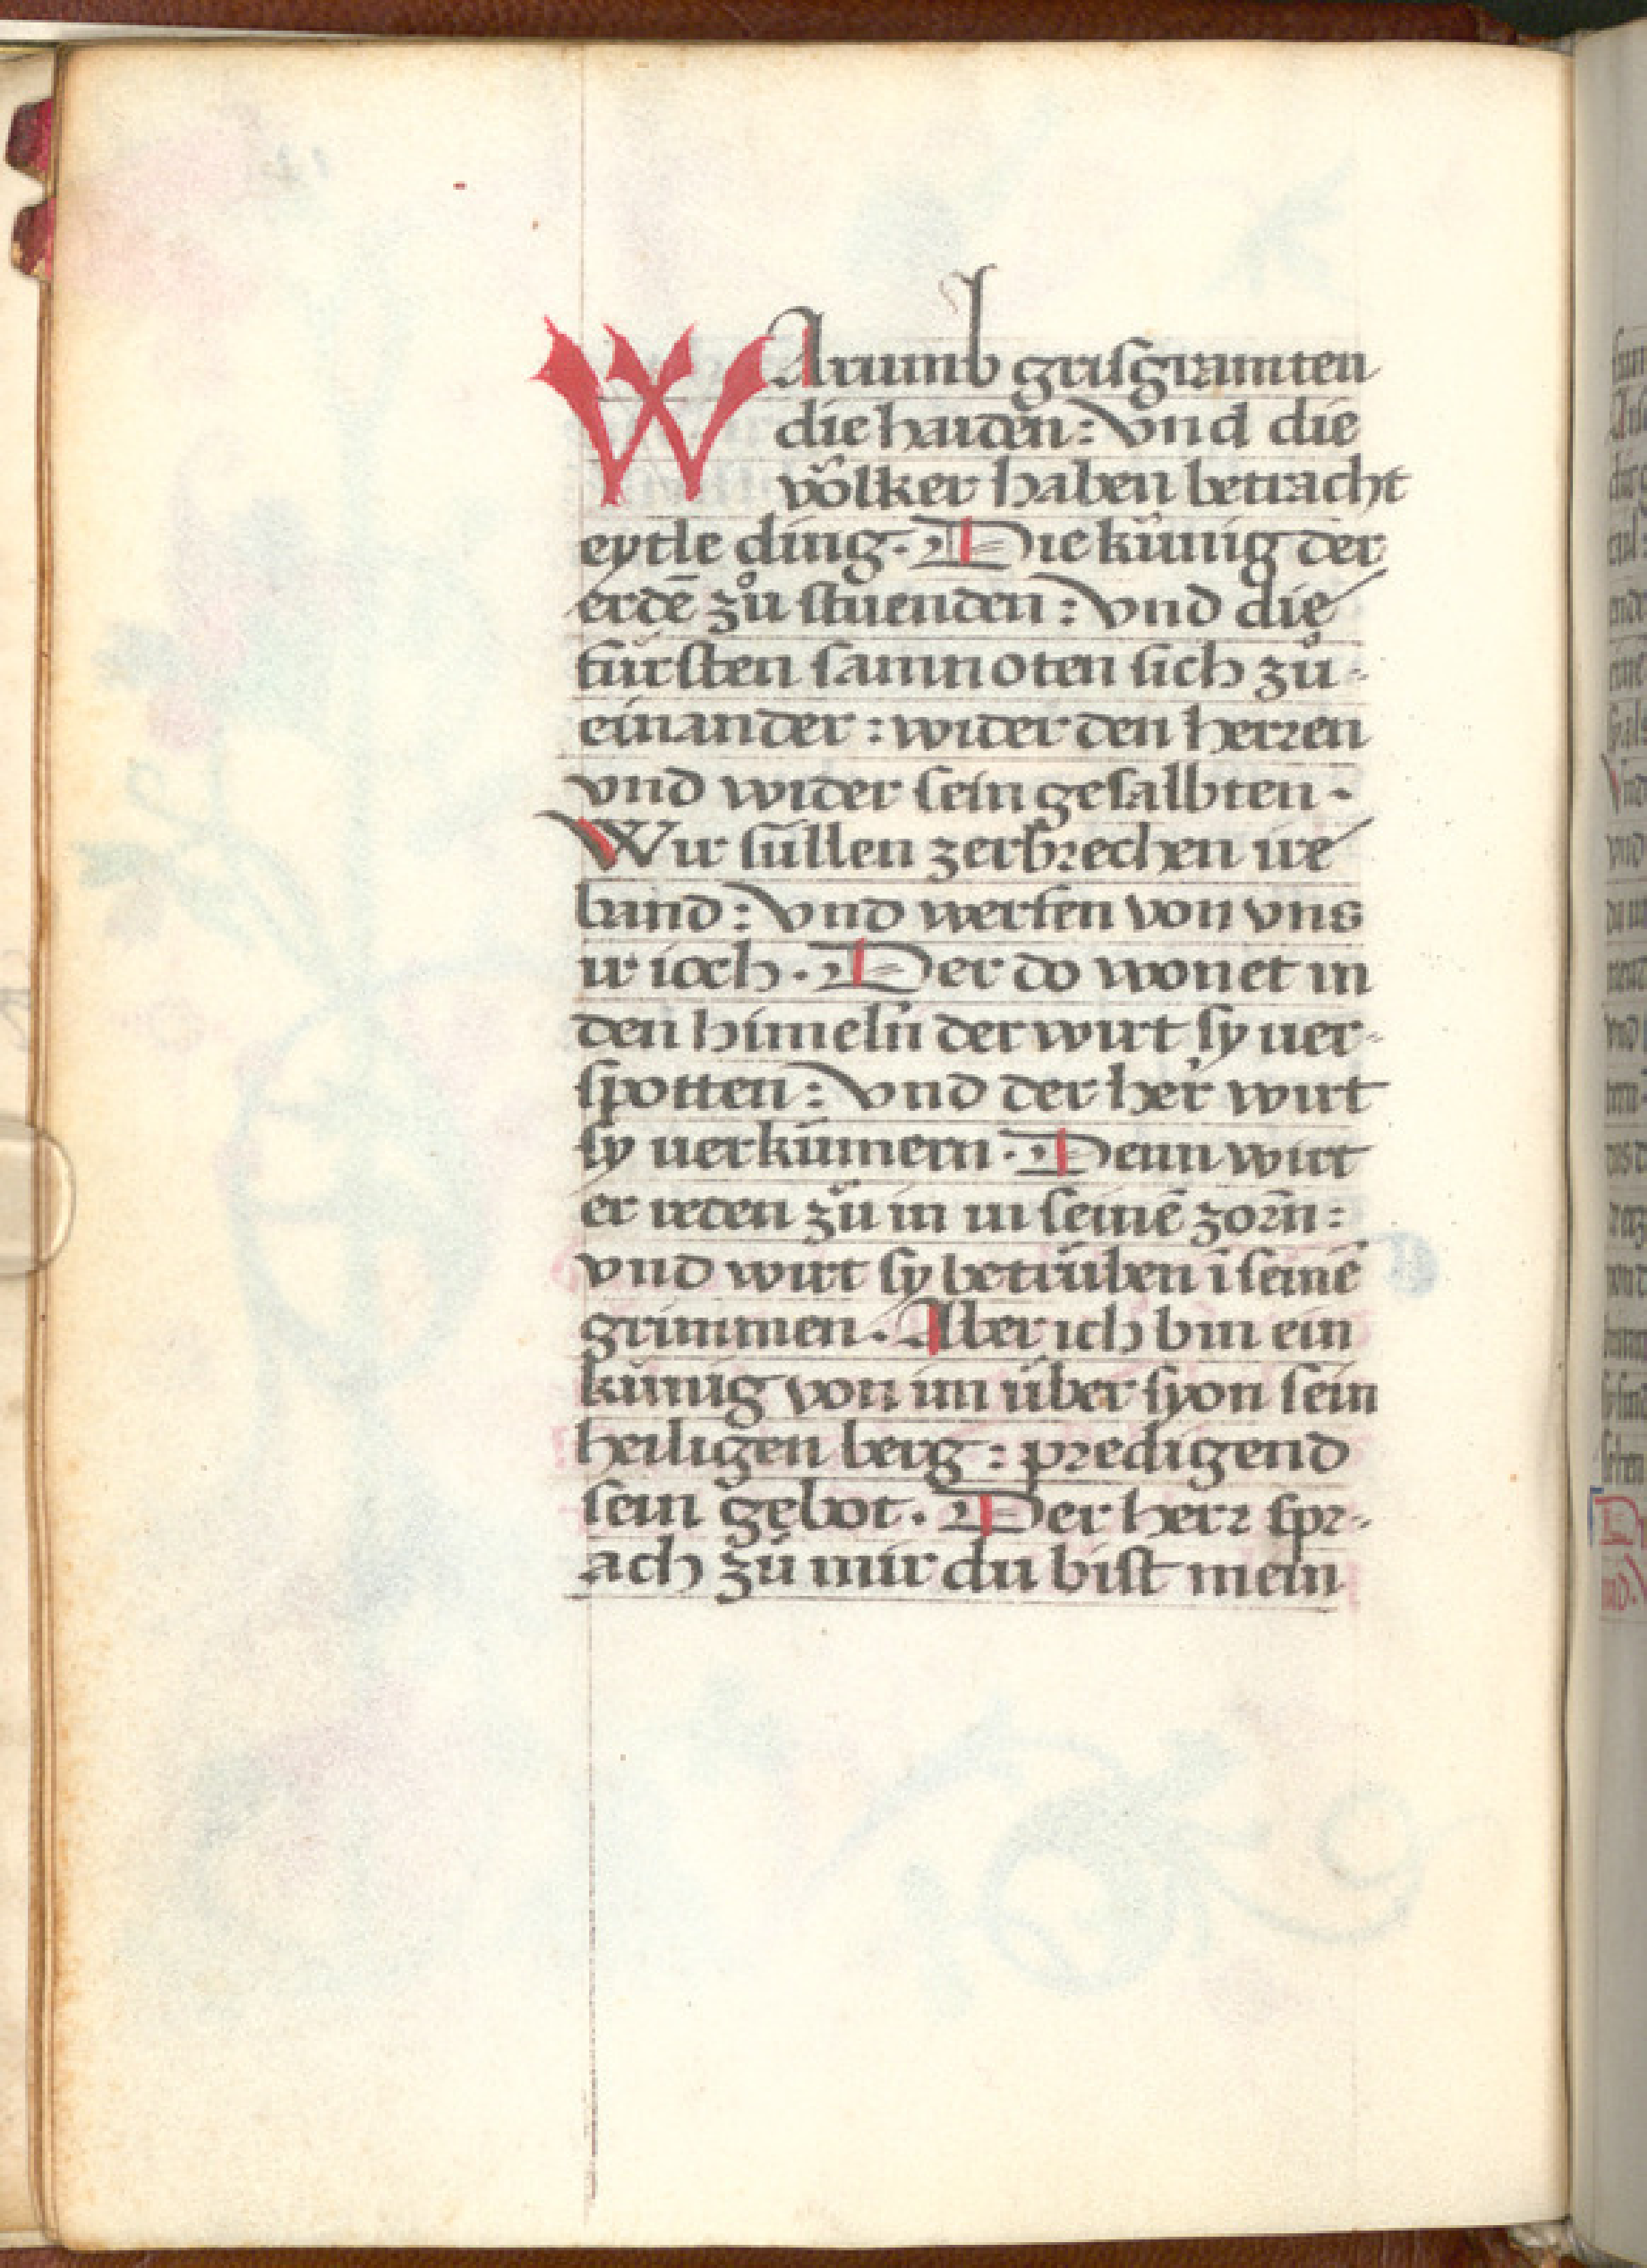 WArumb grisgramten
die haiden: vnd die
völker haben betracht
eytle ding. Die künig der
erdē zů stuenden: vnd die
fürsten samnoten sich zů-
einander: wider den herren
vnd wider sein gesalbten.
Wir süllen zerbrechen ire
band: vnd werfen von vns
ir ioch. Der do wonet in
den himeln der wirt sy uer-
spotten: vnd der her wirt
sy uerkümern. Denn wirt
er reden zů in in seinē zorn:
vnd wirt sy betrüben ī seinē
grimmen. Aber ich bin ein
künig von im über syon sein
heiligen berg: predigend
sein gebot. Der herr spr-
ach zů mir du bist mein